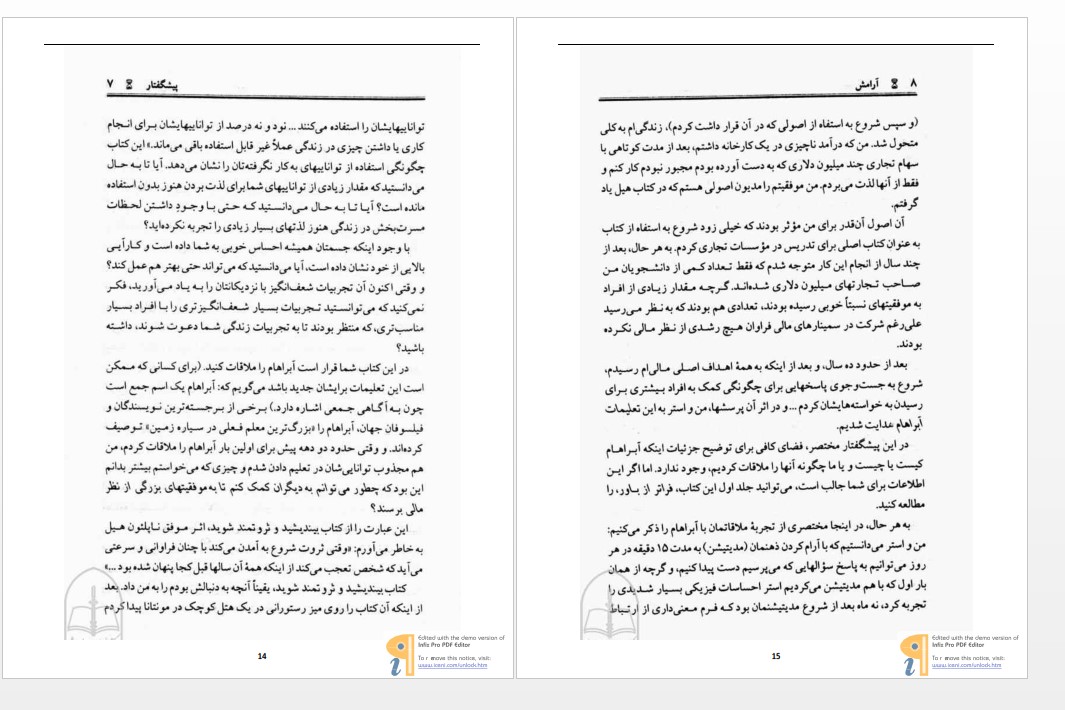 پیشگفتار ⌛ ۷
تواناییهایشان را استفاده می‌کنند ... نود و نه درصد از تواناییهایشان برای انجام
کاری یا داشتن چیزی در زندگی عملاً غیر قابل استفاده باقی می‌ماند.» این کتاب
چگونگی استفاده از تواناییهای به‌کار نگرفته‌تان را نشان می‌دهد. آیا تا به حال
می‌دانستید که مقدار زیادی از تواناییهای شما برای لذت بردن هنوز بدون استفاده
مانده است؟ آیا تا به حال می‌دانستید که حتی با وجود داشتن لحظات
مسرت‌بخش در زندگی هنوز لذتهای بسیار زیادی را تجربه نکرده‌اید؟
با وجود اینکه جسمتان همیشه احساس خوبی به شما داده است و کارآیی
بالایی از خود نشان داده است، آیا می‌دانستید که می‌تواند حتی بهتر هم عمل کند؟
و وقتی اکنون آن تجربیات شعف‌انگیز با نزدیکانتان را به یاد می‌آورید، فکر
نمی‌کنید که می‌توانستید تجربیات بسیار شعف‌انگیزتری را با افراد بسیار
مناسب‌تری، که منتظر بودند تا به تجربیات زندگی شما دعوت شوند، داشته
باشید؟
در این کتاب شما قرار است آبراهام را ملاقات کنید. (برای کسانی که ممکن
است این تعلیمات برایشان جدید باشد می‌گویم که: آبراهام یک اسم جمع است
چون به آگاهی جمعی اشاره دارد.) برخی از برجسته‌ترین نویسندگان و
فیلسوفان جهان، آبراهام را «بزرگ‌ترین معلم فعلی در سیاره زمین» توصیف
کرده‌اند. و وقتی حدود دو دهه پیش برای اولین بار آبراهام را ملاقات کردم، من
هم مجذوب توانایی‌شان در تعلیم دادن شدم و چیزی که می‌خواستم بیشتر بدانم
این بود که چطور می‌توانم به دیگران کمک کنم تا به موفقیتهای بزرگی از نظر
مالی برسند؟
این عبارت را از کتاب بیندیشید و ثروتمند شوید، اثر موفق ناپلئون هیل
به خاطر می‌آورم: «وقتی ثروت شروع به آمدن می‌کند با چنان فراوانی و سرعتی
می‌آید که شخص تعجب می‌کند از اینکه همهٔ آن سالها قبل کجا پنهان شده بود ...»
کتاب بیندیشید و ثروتمند شوید، یقیناً آنچه به دنبالش بودم را به من داد. بعد
از اینکه آن کتاب را روی میز رستورانی در یک هتل کوچک در مونتانا پیدا کردم
14
Edited with the demo version of
Infix Pro PDF Editor
To remove this notice, visit:
www.iceni.com/unlock.htm
۸ ⌛ آرامش
(و سپس شروع به استفاه از اصولی که در آن قرار داشت کردم)، زندگی‌ام به کلی
متحول شد. من که درآمد ناچیزی در یک کارخانه داشتم، بعد از مدت کوتاهی با
سهام تجاری چند میلیون دلاری که به دست آورده بودم مجبور نبودم کار کنم و
فقط از آنها لذت می‌بردم. من موفقیتم را مدیون اصولی هستم که در کتاب هیل یاد
گرفتم.
آن اصول آن‌قدر برای من مؤثر بودند که خیلی زود شروع به استفاه از کتاب
به عنوان کتاب اصلی برای تدریس در مؤسسات تجاری کردم. به هر حال، بعد از
چند سال از انجام این کار متوجه شدم که فقط تعداد کمی از دانشجویان من
صاحب تجارتهای میلیون دلاری شده‌اند. گرچه مقدار زیادی از افراد
به موفقیتهای نسبتاً خوبی رسیده بودند، تعدادی هم بودند که به نظر می‌رسید
علی‌رغم شرکت در سمینارهای مالی فراوان هیچ رشدی از نظر مالی نکرده
بودند.
بعد از حدود ده سال، و بعد از اینکه به همهٔ اهداف اصلی مالی‌ام رسیدم،
شروع به جست‌وجوی پاسخهایی برای چگونگی کمک به افراد بیشتری برای
رسیدن به خواسته‌هایشان کردم ... و در اثر آن پرسشها، من و استر به این تعلیمات
آبراهام هدایت شدیم.
در این پیشگفتار مختصر، فضای کافی برای توضیح جزئیات اینکه آبراهام
کیست یا چیست و یا ما چگونه آنها را ملاقات کردیم، وجود ندارد. اما اگر این
اطلاعات برای شما جالب است، می‌توانید جلد اول این کتاب، فراتر از باور، را
مطالعه کنید.
به هر حال، در اینجا مختصری از تجربهٔ ملاقاتمان با آبراهام را ذکر می‌کنیم:
من و استر می‌دانستیم که با آرام کردن ذهنمان (مدیتیشن) به مدت ۱۵ دقیقه در هر
روز می‌توانیم به پاسخ سؤالهایی که می‌پرسیم دست پیدا کنیم، و گرچه از همان
بار اول که با هم مدیتیشن می‌کردیم استر احساسات فیزیکی بسیار شدیدی را
تجربه کرد، نه ماه بعد از شروع مدیتیشنمان بود که فرم معنی‌داری از ارتباط
15
Edited with the demo version of
Infix Pro PDF Editor
To remove this notice, visit:
www.iceni.com/unlock.htm